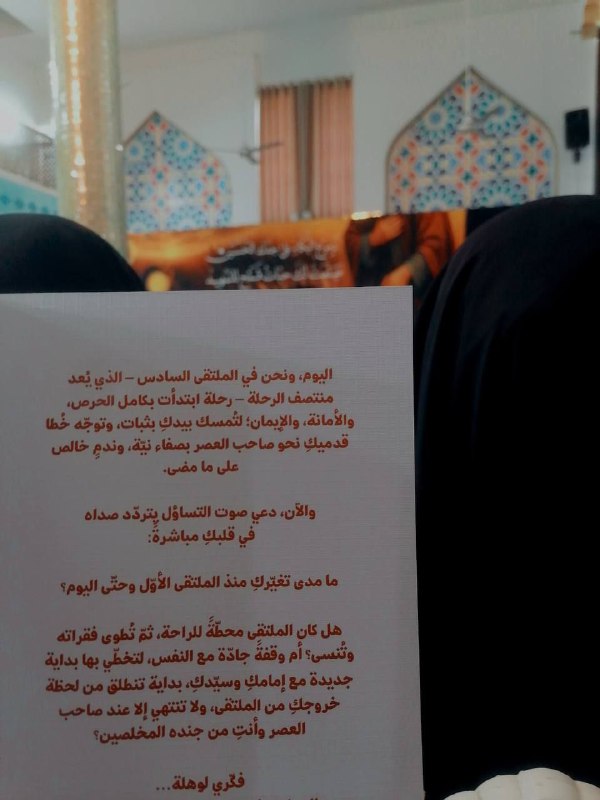 اليوم، ونحن في الملتقى السادس – الذي يُعد
منتصف الرحلة – رحلة ابتدأت بكامل الحرص،
والأمانة، والإيمان؛ لتُمسك بيدكِ بثبات، وتوجّه خُطا
قدميكِ نحو صاحب العصر بصفاء نيّة، وندمٍ خالص
على ما مضى.
والآن، دعي صوت التساؤل يتردّد صداه
في قلبكِ مباشرةً:
ما مدى تغيّركِ منذ الملتقى الأوّل وحتّى اليوم؟
هل كان الملتقى محطّةً للراحة، ثمّ تُطوى فقراته
وتُنسى؟ أم وقفةً جادّة مع النفس، لتخطّي بها بداية
جديدة مع إمامكِ وسيّدكِ، بداية تنطلق من لحظة
خروجكِ من الملتقى، ولا تنتهي إلا عند صاحب
العصر وأنتِ من جنده المخلصين؟
فكّري لوهلة...